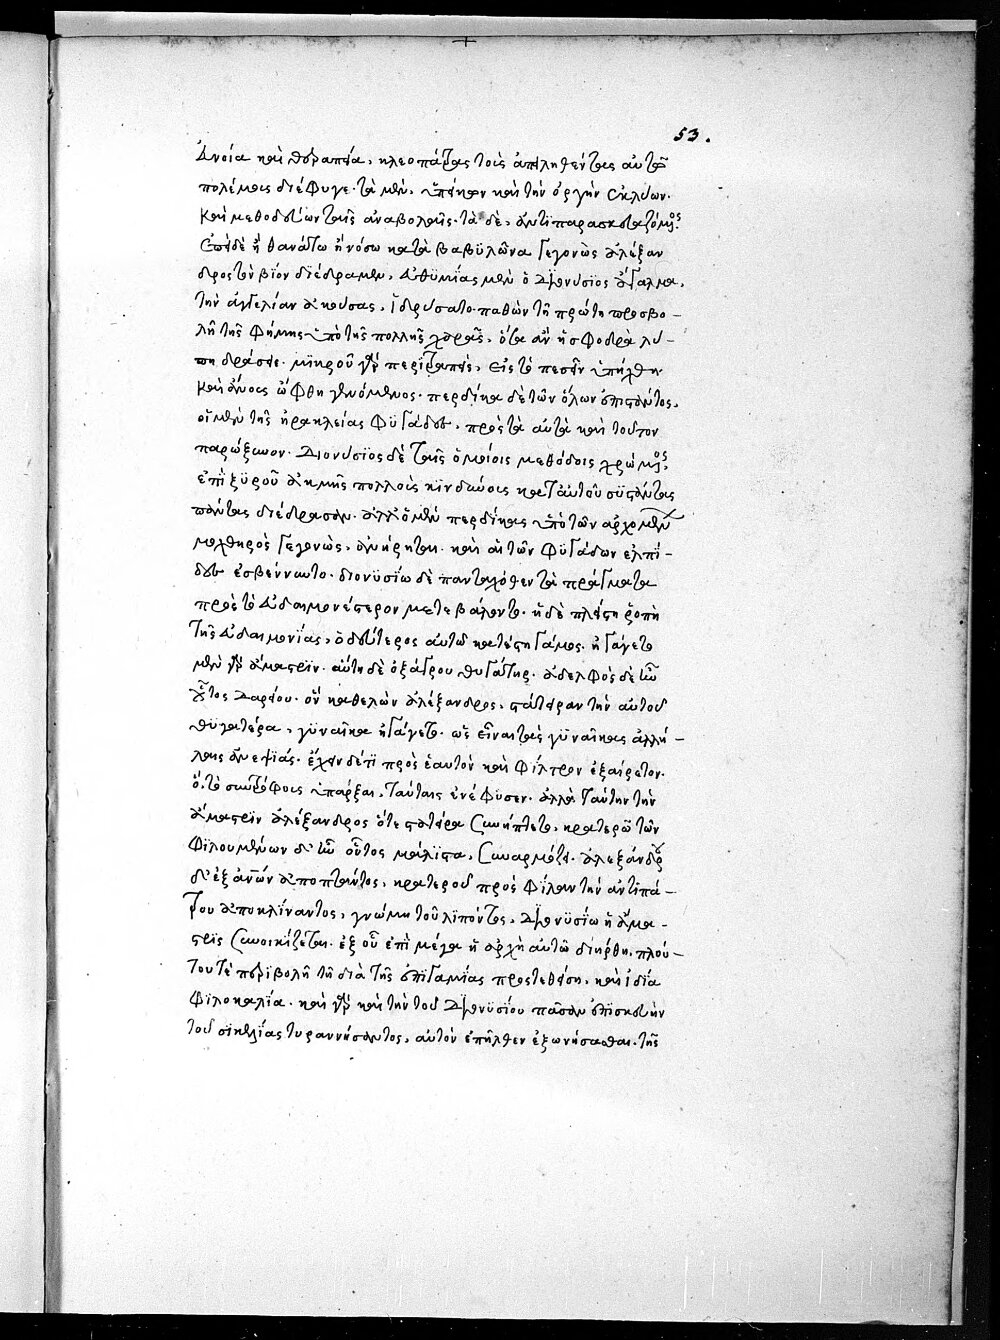 53.
ἀνοία καὶ θεραπεία, κλεοπάτρας τοὺς ἀπειληθέντας αὐτῶ
πολέμους διέφυγε. τὰ μὲν, ὑπείκων καὶ τὴν ὀργὴν ἐκλύων.
καὶ μεθοδεύων ταῖς ἀναβολαῖς. τὰ δὲ, ἀντιπαρασκευαζόμενος.
ἐπεὶ δὲ ἢ θανάτω ἢ νόσω κατὰ βαβυλῶνα γεγονὼς ἀλέξαν
δρος τὸν βίον διέδραμεν, εὐθυμίας μὲν ὁ διονύσιος ἄγαλμα,
τὴν ἀγγελίαν ἀκούσας, ἱδρύσατο. παθὼν τῆ πρώτη προσβο-
λῆ τῆς φήμης ὑπὸ τῆς πολλῆς χαρᾶς, ὅσα ἂν ἡ σφοδρὰ λύ-
πη δράσειε. μικροῦ γὰρ περιτραπεὶς, εἰς τὸ πεσεῖν ὑπήχθη.
καὶ ἄνους ὤφθη γενόμενος. περδίκα δὲ τῶν ὅλων ἐπιστάντος,
οἱ μὲν τῆς ἡρακλείας φυγάδες, πρὸς τὰ αὐτὰ καὶ τοῦτον
παρώξυνον. διονύσιος δὲ ταῖς ὁμοίοις μεθόδοις χρώμενος,
ἐπὶ ξυροῦ ἀκμῆς πολλοὺς κινδύνους κατ' αὐτοῦ συστάντας
πάντας διέδρασεν. ἀλλ' ὁ μὲν περδίκας ὑπὸ τῶν ἀρχομένων
μοχθηρὸς γεγονὼς, ἀνήρηται. καὶ αἱ τῶν φυγάδων ἐλπί-
δες ἐσβέννυντο. διονυσίω δὲ πανταχόθεν τὰ πράγματα
πρὸς τὸ εὐδαιμονέστερον μετεβάλοντο. ἡ δὲ πλείστη ῥοπὴ
τῆς εὐδαιμονίας, ὁ δεύτερος αὐτῶ κατέστη γάμος. ἠγάγετο
μὲν γὰρ ἄμαστριν. αὕτη δὲ ὀξάτρου θυγάτηρ. ἀδελφὸς δὲ ἦν
οὗτος δαρείου. ὃν καθελὼν ἀλέξανδρος, στάτειραν τὴν αὐτοῦ
θυγατέρα, γυναῖκα ἠγάγετο. ὡς εἶναι τὰς γυναῖκας ἀλλή-
λαις ἀνεψιάς. ἔχειν δέ τι πρὸς ἑαυτὸν καὶ φίλτρον ἐξαίρετον.
ὃ, τὸ συντρόφοις ὑπάρξαι, ταύταις ἐνέφυσεν. ἀλλὰ ταύτην τὴν
ἄμαστριν ἀλέξανδρος ὅτε στατείρα συνήπτετο, κρατερῶ τῶν
φιλουμένων δ' ἦν οὗτος μάλιστα, συναρμόζει. ἀλεξάνδρου
δ' ἐξ ἀνθρώπων ἀποπτάντος, κρατεροῦ πρὸς φίλαν τὴν ἀντιπά-
τρου ἀποκλίναντος, γνώμη τοῦ λιπόντος, διονυσίω ἡ ἄμα-
στρις συνοικίζεται. ἐξ οὗ ἐπὶ μέγα ἡ ἀρχὴ αὐτῶ διήρθη, πλού-
του τε περιβολῆ τῆ διὰ τῆς ἐπιγαμίας προστεθείση, καὶ ἰδία
φιλοκαλία. καὶ γὰρ καὶ τὴν τοῦ διονυσίου πᾶσαν ἐπισκευὴν
τοῦ σικελίας τυραννήσαντος, αὐτὸν ἐπῆλθεν ἐξωνήσασθαι. τῆς